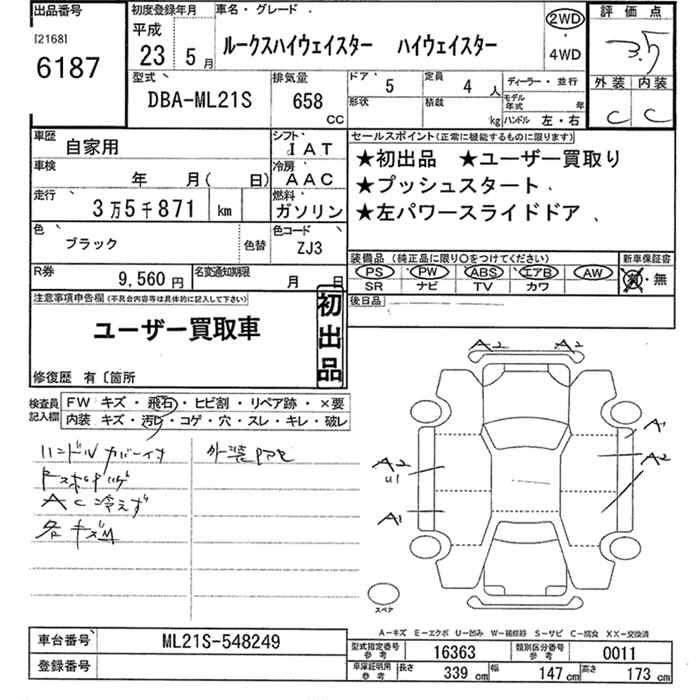 出品番号 初度登録年月 車名・グレード 評価点
[2168] 平成 2WD
6187 23 5月 ルークスハイウェイスター ハイウェイスター 4WD 3.5
型式 排気量 ドア 5 定員 4人 ディーラー・並行 外装 内装
DBA-ML21S 658 CC 形状 積載 kg モデル年式 年 C C
ハンドル 左・右
車歴 自家用 シフト IAT セールスポイント(正常に機能するものに限ります)
車検 年 月( 日) 冷房 AAC ★初出品 ★ユーザー買取り
走行 3万5千871 km 燃料 ガソリン ★プッシュスタート
★左パワースライドドア
色 ブラック 色替 色コード ZJ3
装備品(純正品に限り○をつけてください) 新車保証書
R券 9,560円 名変通知期限 月 日 PS PW ABS エアB AW 有・無
SR ナビ TV カワ
注意事項申告欄(不具合内容等は具体的に記入して下さい) 初出品 後日品
ユーザー買取車
修復歴 有〔箇所
A2 A2
検査員記入欄 FW キズ・飛石・ヒビ割・リペア跡・×要
内装 キズ・汚れ・コゲ・穴・スレ・キレ・破レ
ハンドルカバーイタ 外装
AC冷えず
各キズ
A1
A2 A2
U1
A1
スペア
A-キズ E-エクボ U-凹み W-補修跡 S-サビ C-腐食 XX-交換済
車台番号 ML21S-548249 型式指定番号 参考 16363 類別区分番号 参考 0011
登録番号 車庫証明用 参考 長さ 339 cm 幅 147 cm 高さ 173 cm